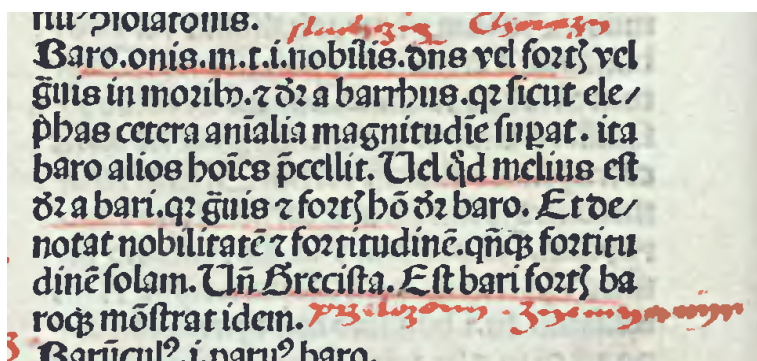 Baro.onis.m.t.i.nobilis.dñs vel fortꝫ vel
g̃uis in moribꝰ.⁊ dr̃ a barrhus.qꝛ sicut ele/
phas cetera aĩalia magnitudĩe suꝑat. ita
baro alios hoĩes p̃cellit. Uel qd̃ melius est
dr̃ a bari.qꝛ g̃uis ⁊ fortꝫ hõ dr̃ baro. Et de/
notat nobilitatẽ ⁊ fortitudinẽ.qñqꝫ fortitu
dinẽ solam. Uñ Grecista. Est bari fortꝫ ba
roqꝫ mõstrat idem.
Barũculꝰ.i.paruꝰ baro.